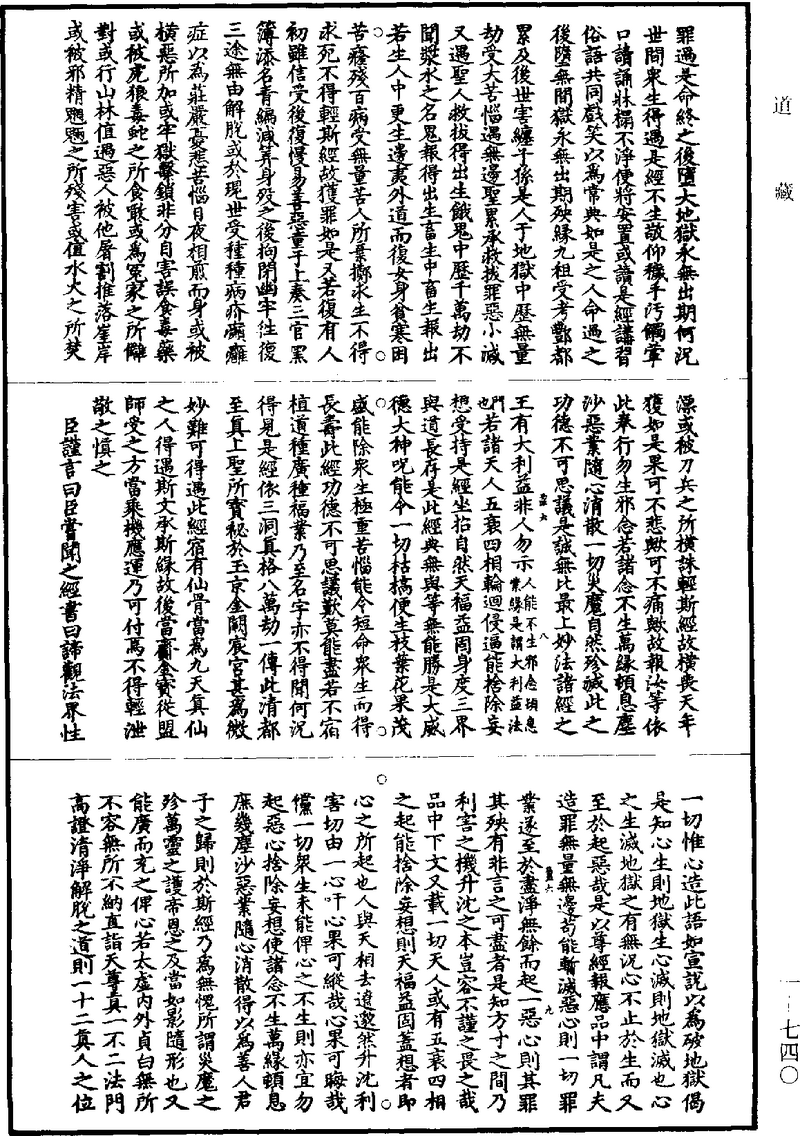 道藏
罪過是命終之後墮大地獄永無出期何況
世間衆生得遇是經不生敬仰穢手汚觸葷
口讀誦牀榻不淨便將安置或讀是經講習
俗語共同戲笑以爲常典如是之人命過之
後墮無間獄永無出期殃緣九祖受考酆都
累及後世害纏子孫是人于地獄中歷無量
劫受大苦惱遇無邊聖累承救拔罪惡小減
又遇聖人救拔得出生餓鬼中歷千萬劫不
聞漿水之名鬼報得出生畜生中畜生報出
若生人中更生邊夷外道而復女身貧寒困
苦癃殘百病受無量苦人所棄擲求生不得
求死不得輕斯經故獲罪如是又若復有人
初雖信受後復慢易善惡童子上奏三官黑
簿添名青編減筭身殁之後拘閉幽牢往復
三途無由解脫或於現世受種種病疥癩癰
症以爲莊嚴憂悲苦惱日夜相煎而身或被
橫惡所加或牢獄繫鎖非分自害誤食毒藥
或被虎狼毒蛇之所食噉或爲冤家之所讎
對或行山林值遇惡人被他屠割推落崖岸
或被邪精魍魎之所殘害或值水火之所焚
漂或被刀兵之所橫誅輕斯經故橫喪天年
獲如是果可不悲歟可不痛歟故報汝等依
此奉行勿生邪念若諸念不生萬緣頓息塵
沙惡業隨心消散一切災魔自然殄滅此之
功德不可思議是誠無比最上妙法諸經之
王有大利益非人勿示人能不生邪念頓息業緣是謂大利益法
門也若諸天人五衰四相輪迴侵逼能捨除妄
想受持是經坐招自然天福益固身度三界
與道長存是此經典無與等無能勝是大威
德大神呪能令一切枯槁便生枝葉花果茂
盛能除衆生極重苦惱能令短命衆生而得
長壽此經功德不可思議歎莫能盡若不宿
植道種廣種福業乃至名字亦不得聞何況
得見是經依三洞真格八萬劫一傳此清都
至真上聖所寶秘於玉京金闕宸宮甚爲微
妙難可得遇此經宿有仙骨當爲九天真仙
之人得遇斯文承斯緣故後當齎金寶從盟
師受之方當乘機應運乃可付焉不得輕泄
敬之慎之
臣謹言曰臣嘗聞之經書曰諦觀法界性
一切惟心造此語如宣說以爲破地獄偈
是知心生則地獄生心滅則地獄滅也心
之生滅地獄之有無況心不止於生而又
至於起惡哉是以尊經報應品中謂凡夫
造罪無量無邊苟能暫滅惡心則一切罪
業遂至於盡淨無餘而起一惡心則其罪
其殃有非言之可盡者是知方寸之間乃
利害之機升沈之本豈容不謹之畏之哉
品中下文又載一切天人或有五衰四相
之起能捨除妄想則天福益固蓋想者即
心之所起也人與天相去遼邈然升沈利
害切由一心吁心果可縱哉心果可晦哉
儻一切衆生未能俾心之不生則亦宜勿
起惡心捨除妄想使諸念不生萬緣頓息
庶幾塵沙惡業隨心消散得以爲善人君
子之歸則於斯經乃爲無愧所謂災魔之
殄萬靈之護帝恩之及當如影隨形也又
能廣而充之俾心若太虛內外貞白無所
不容無所不納直詣天尊真一不二法門
高證清淨解脫之道則一十二真人之位
一-七四〇